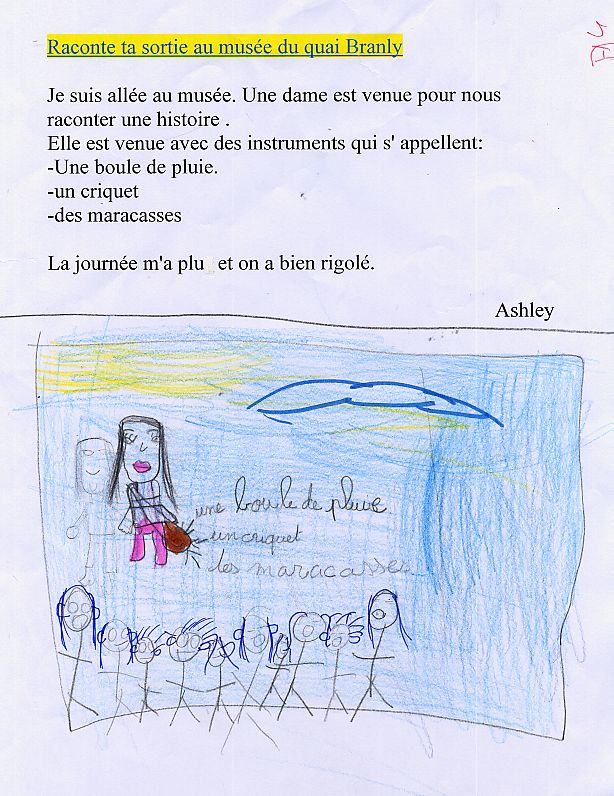 Raconte ta sortie au musée du quai Branly
Je suis allée au musée. Une dame est venue pour nous
raconter une histoire .
Elle est venue avec des instruments qui s' appellent:
-Une boule de pluie.
-un criquet
-des maracasses
La journée m'a plu et on a bien rigolé.
Ashley
une boule de pluie
un criquet
des maracasses